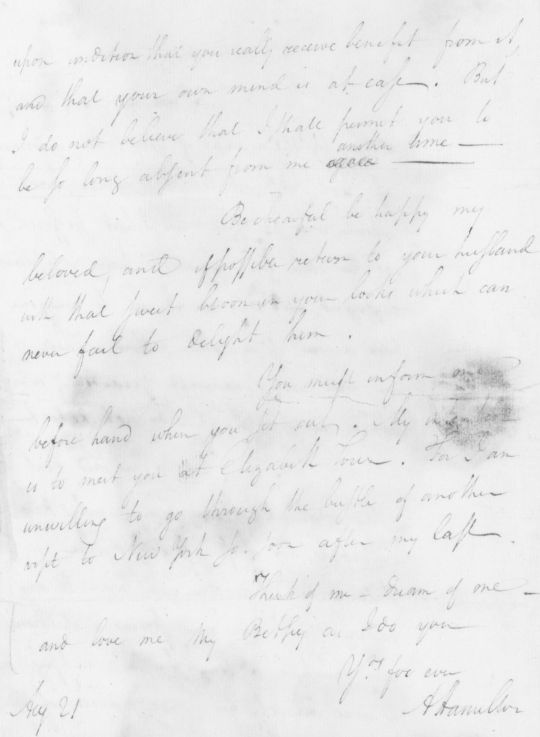 upon condition that you really receive benefit from it,
and that your own mind is at ease. But
I do not believe that I shall permit you to
be so long absent from me another time —
Be chearful be happy my
beloved, and if possible return to your husband
with that sweet bloom in your looks which can
never fail to delight him.
You must inform me
before hand when you set out. My
is to meet you at Elizabeth Town. For I am
unwilling to go through the bustle of another
visit to New York so soon after my last.
Think of me – dream of me –
and love me my Betsey as I do you
Yrs for ever
A Hamilton
Aug 21